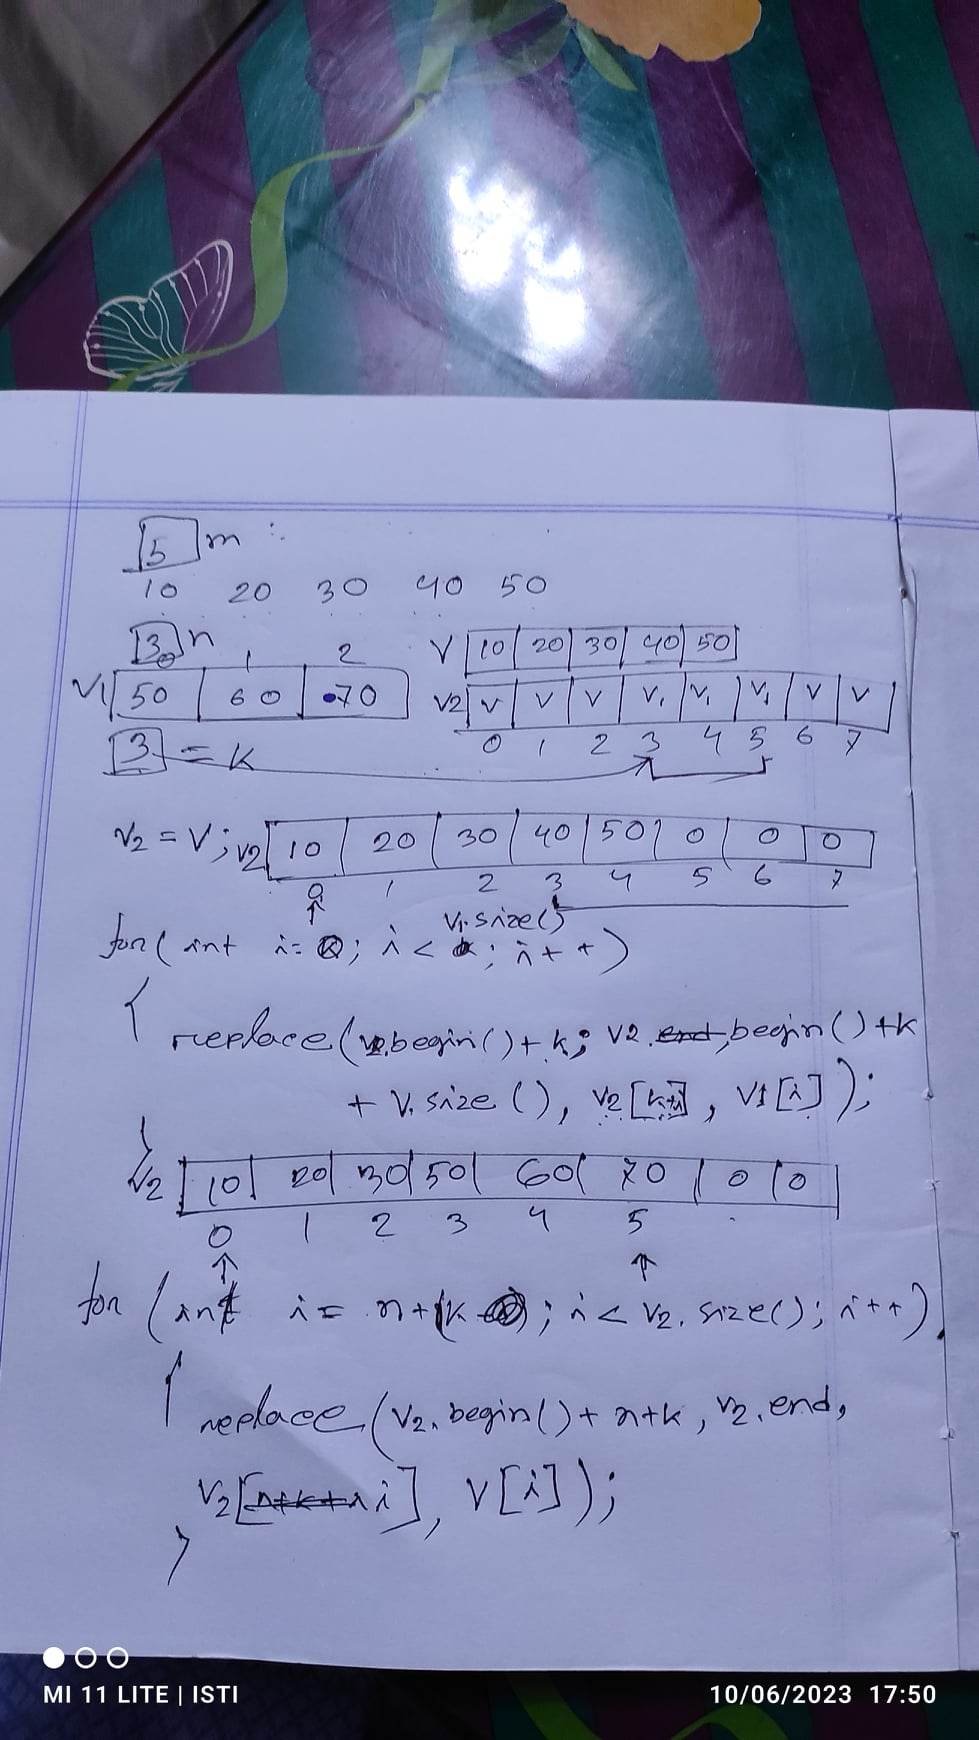 5 m :
10 20 30 40 50
3 n
0 1 2
V1 50 60 70
V 10 20 30 40 50
V2 V V V V1 V1 V1 V V
0 1 2 3 4 5 6 7
3 = k
V2 = V ; V2 10 20 30 40 50 0 0 0
0 1 2 3 4 5 6 7
V1.size()
for ( int i = 0 ; i < ; i + + )
{
replace ( V2.begin() + k ; V2. end, begin() + k
+ V. size (), V2 [k+i] , V1 [i] );
}
V2 10 20 30 50 60 70 0 0
0 1 2 3 4 5
for ( int i = n + k ; i < V2. size() ; i + + )
{
replace ( V2. begin() + n+k , V2. end,
V2 [n+k+i i] , V [i] );
}
MI 11 LITE | ISTI
10/06/2023 17:50